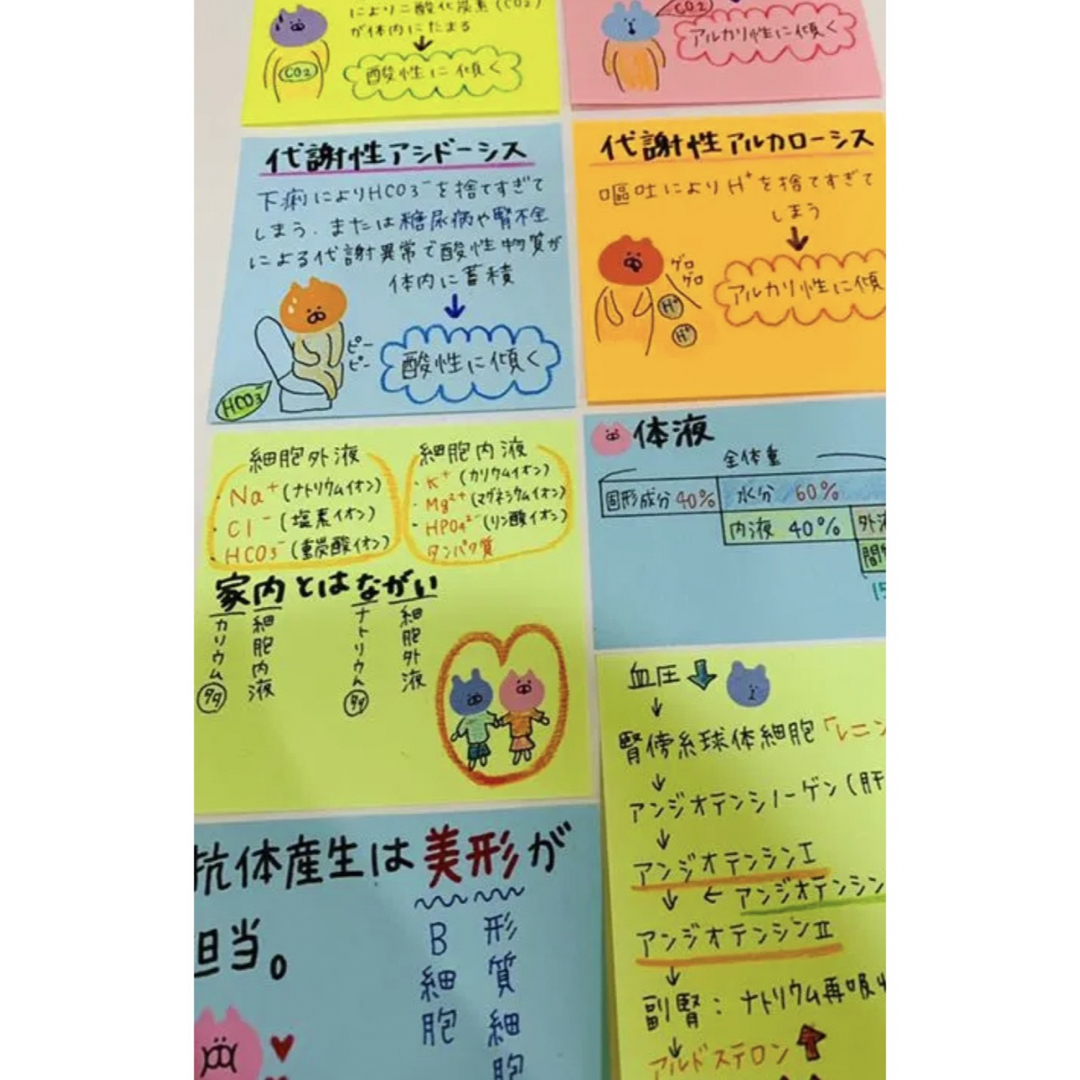 により二酸化炭素(CO2)
が体内にたまる
↓
酸性に傾く
CO2
CO2
アルカリ性に傾く
代謝性アシドーシス
下痢によりHCO3⁻を捨てすぎて
しまう. または糖尿病や腎不全
による代謝異常で酸性物質が
体内に蓄積
↓
酸性に傾く
ピー
ピー
HCO3⁻
代謝性アルカローシス
嘔吐によりH⁺を捨てすぎて
しまう
↓
ゲロ
ゲロ
H⁺
H⁺
アルカリ性に傾
細胞外液
・Na⁺(ナトリウムイオン)
・Cl⁻(塩素イオン)
・HCO3⁻(重炭酸イオン)
細胞内液
・K⁺(カリウムイオン)
・Mg²⁺(マグネシウムイオン)
・HPO4²⁻(リン酸イオン)
タンパク質
家内とはながい
カリウム多
細胞内液
ナトリウム多
細胞外液
体液
全体重
固形成分 40% 水分 60%
内液 40% 外液
間
15
血圧↓
↓
腎傍糸球体細胞「レニン
↓
アンジオテンシノーゲン(肝
↓
アンジオテンシンⅠ
↓ ← アンジオテンシン
アンジオテンシンⅡ
↓
副腎:ナトリウム再吸収
↓
アルドステロン↑
抗体産生は美形が
担当。
B細胞
形質細胞